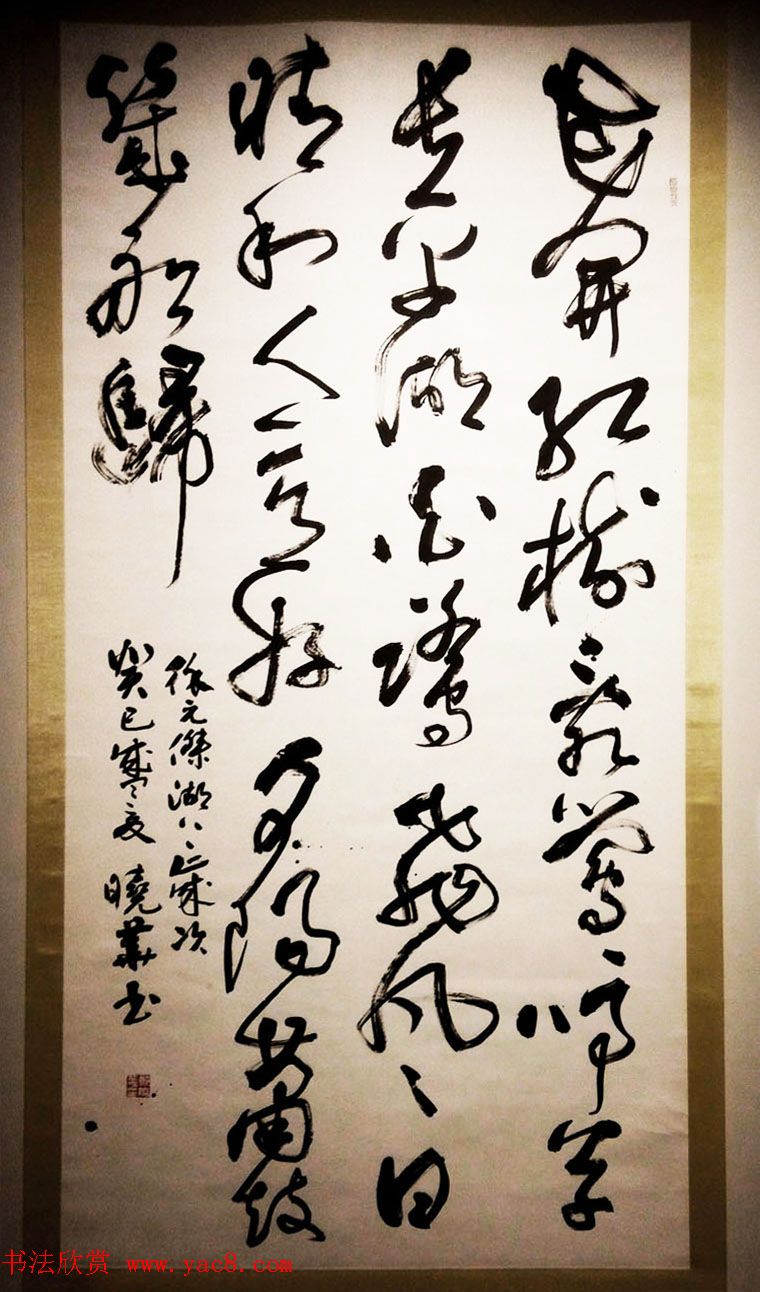 花開紅樹亂鶯啼草
長平湖白鷺飛風日
晴和人意好夕陽簫鼓
幾船歸
徐元傑湖上歲次
癸巳 曉華书
书法欣赏 www.yac8.com